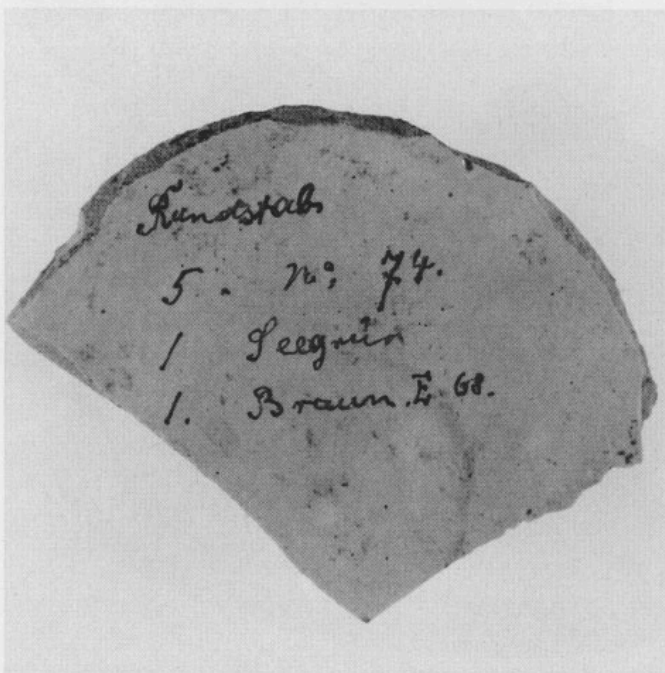 Rundstab
5. No 74.
1 Seegrün
1. Braun. E 68.